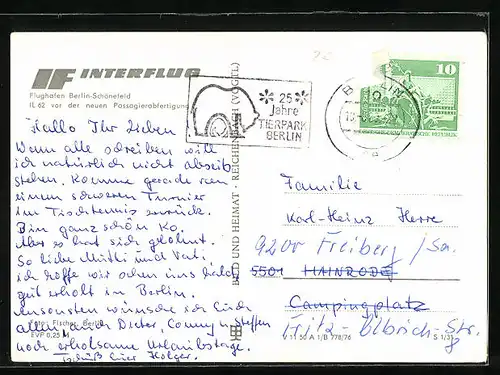 INTERFLUG
Flughafen Berlin-Schönefeld
IL 62 vor der neuen Passagierabfertigung
25
Jahre
TIERPARK
BERLIN
BERLIN
10
BILD UND HEIMAT · REICHENBACH (VOGTL)
Hallo Ihr Lieben
Wann alle schreiben will
ich natürlich nicht abseits
stehen. Komme gerade von
einem schweren Turnier
im Tischtennis zurück.
Bin ganz schön Ko.
Aber es hat sich gelohnt.
So liebe Mutti und Vati,
ich hoffe wir sehen uns bald
gut erholt in Berlin.
Ansonsten wünsche ich Euch
allen, auch Dieter, Conny u Steffen
noch erholsame Urlaubstage.
Tschüß Euer Holger.
Foto: Fischer, Berlin
EVP 0,25 M
Familie
Karl-Heinz Herre
9200 Freiberg / Sa.
5501 HAINRODE
Campingplatz
Fritz-Olbrich-Str.
V 11 50 A 1/B 778/76
S 1/3